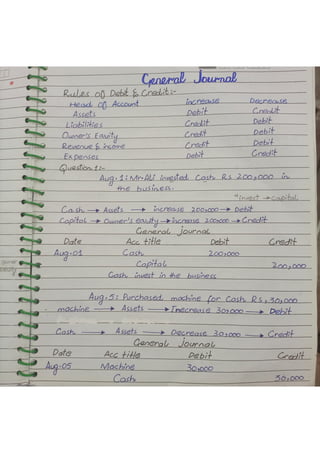 General Journal
Rules of Debit & Credit:-
Head of Account Increase Decrease
Assets Debit Credit
Liabilities Credit Debit
Owner's Equity Credit Debit
Revenue & income Credit Debit
Expenses Debit Credit
Question 1:-
Aug. 1: Mr. Ali invested Cash Rs 200,000 in
the business.
*Invest → Capital
Cash → Assets → increase 200,000 → Debit
Capital → Owner's equity → increase 200,000 → Credit
General journal
Date Acc title Debit Credit
Aug-01 Cash 200,000
Capital 200,000
Cash invest in the business
Aug. 5: Purchased machine for Cash Rs, 30,000
machine → Assets → Increcrease 30,000 → Debit
Cash → Assets → Decrease 30,000 → Credit
General Journal
Date Acc title Debit Credit
Aug-05 Machine 30,000
Cash 30,000